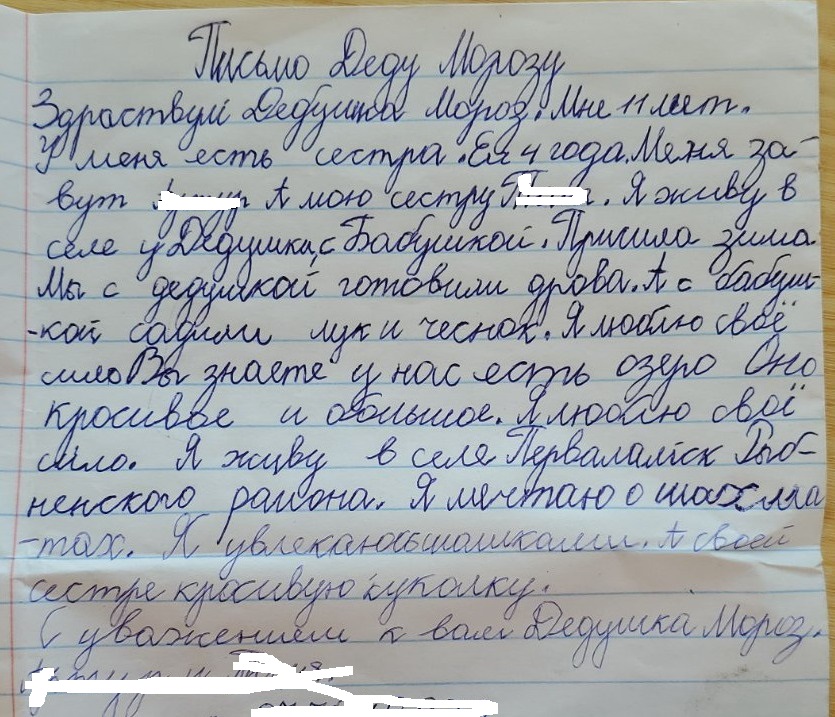 Письмо Деду Морозу
Здраствуй Дедушка Мороз. Мне 11 лет.
У меня есть сестра. Ей 4 года. Меня за-
вут А мою сестру Я живу в
селе у Дедушки, с Бабушкой. Пришла зима
Мы с дедушкой готовили дрова. А с бабуш-
-кой садили лук и чеснок. Я люблю своё
сило Вы знаете у нас есть озеро Оно
красивое и большое. Я люблю своё
сило. Я живу в селе Рыб-
ненского района. Я мечтаю о шахсма
-тах. Я увлекаюсь шашками. А своей
сестре красивую куколку.
С уважением к вам Дедушка Мороз.